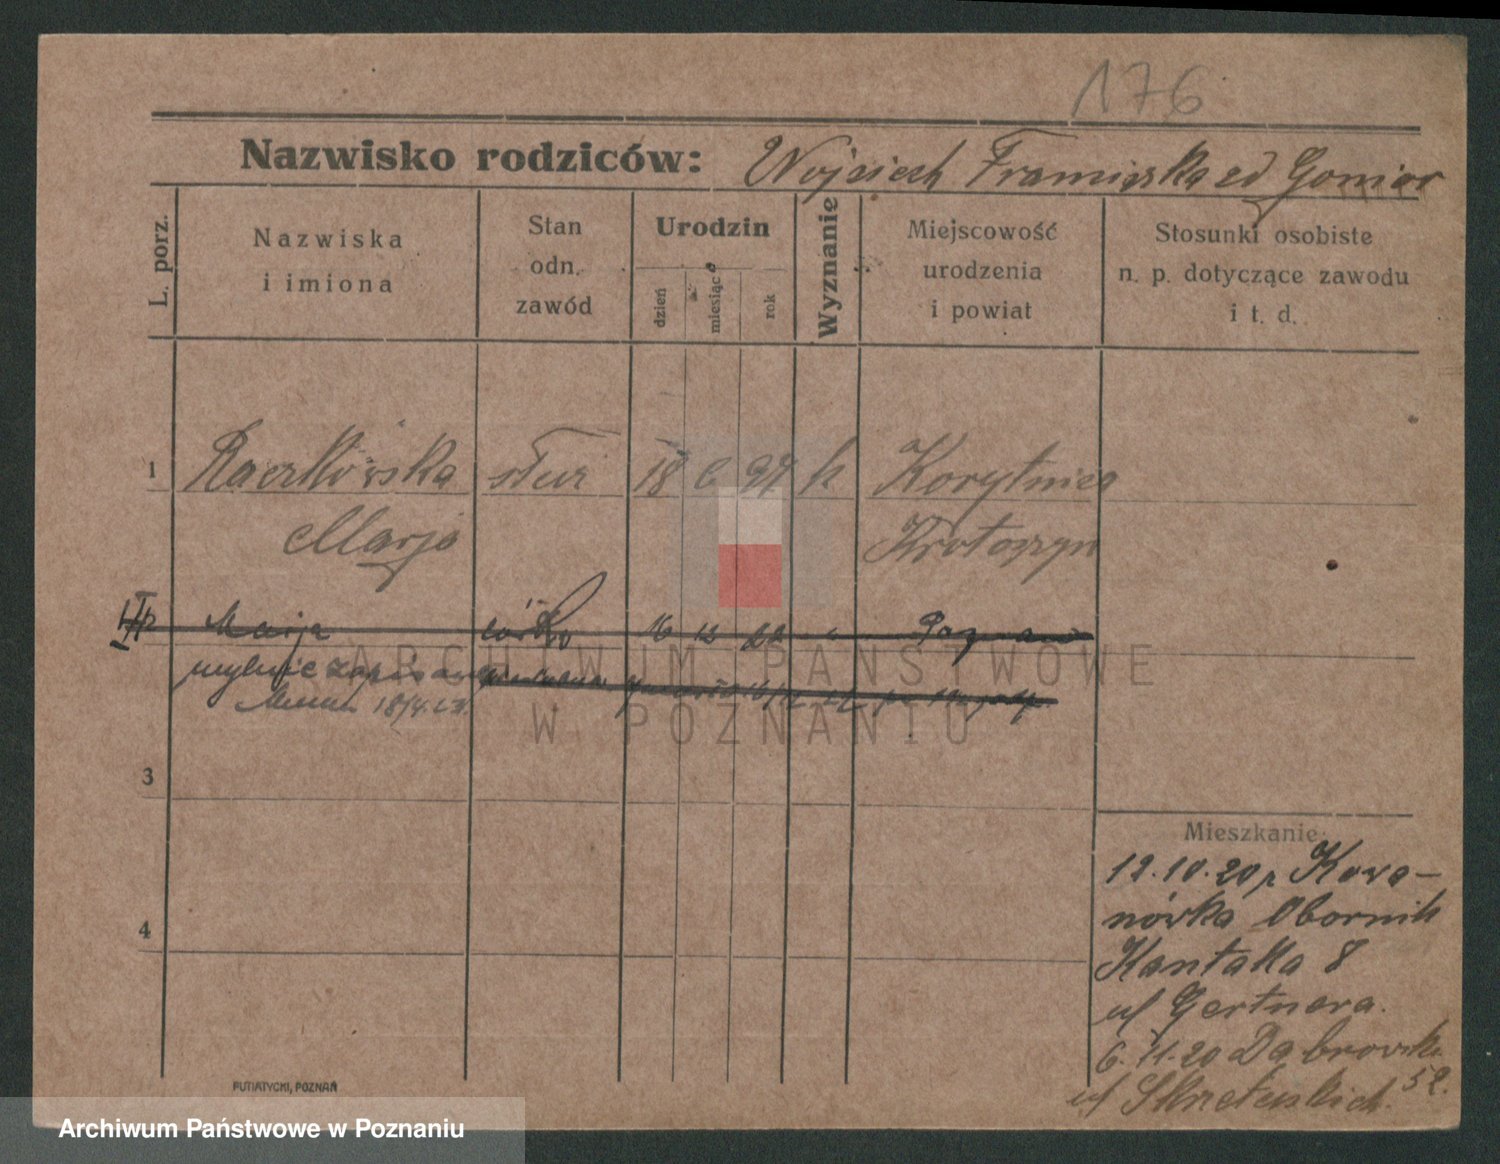 176
Nazwisko rodziców: Wojciech Franciszka zd Gonior
L. porz.
Nazwiska
i imiona
Stan
odn.
zawód
Urodzin
dzień
miesiąc
rok
Wyznanie
Miejscowość
urodzenia
i powiat
Stosunki osobiste
n. p. dotyczące zawodu
i t. d.
1 Raczkowska służ 18 6 97 k Korytnica
Marja Krotoszyn
Marja córka 16 12 22 Poznań
mylnie zapisana
18/4.23.
3
4
Mieszkanie:
12.10.20 z Kowa-
nówka Obornik
Kantaka 8
u/ Gertnera.
6.11.20 Dąbrowsk.
u/ Skrzetuskich. 52.
PUTIATYCKI, POZNAŃ
ARCHIWUM PAŃSTWOWE
W POZNANIU
Archiwum Państwowe w Poznaniu